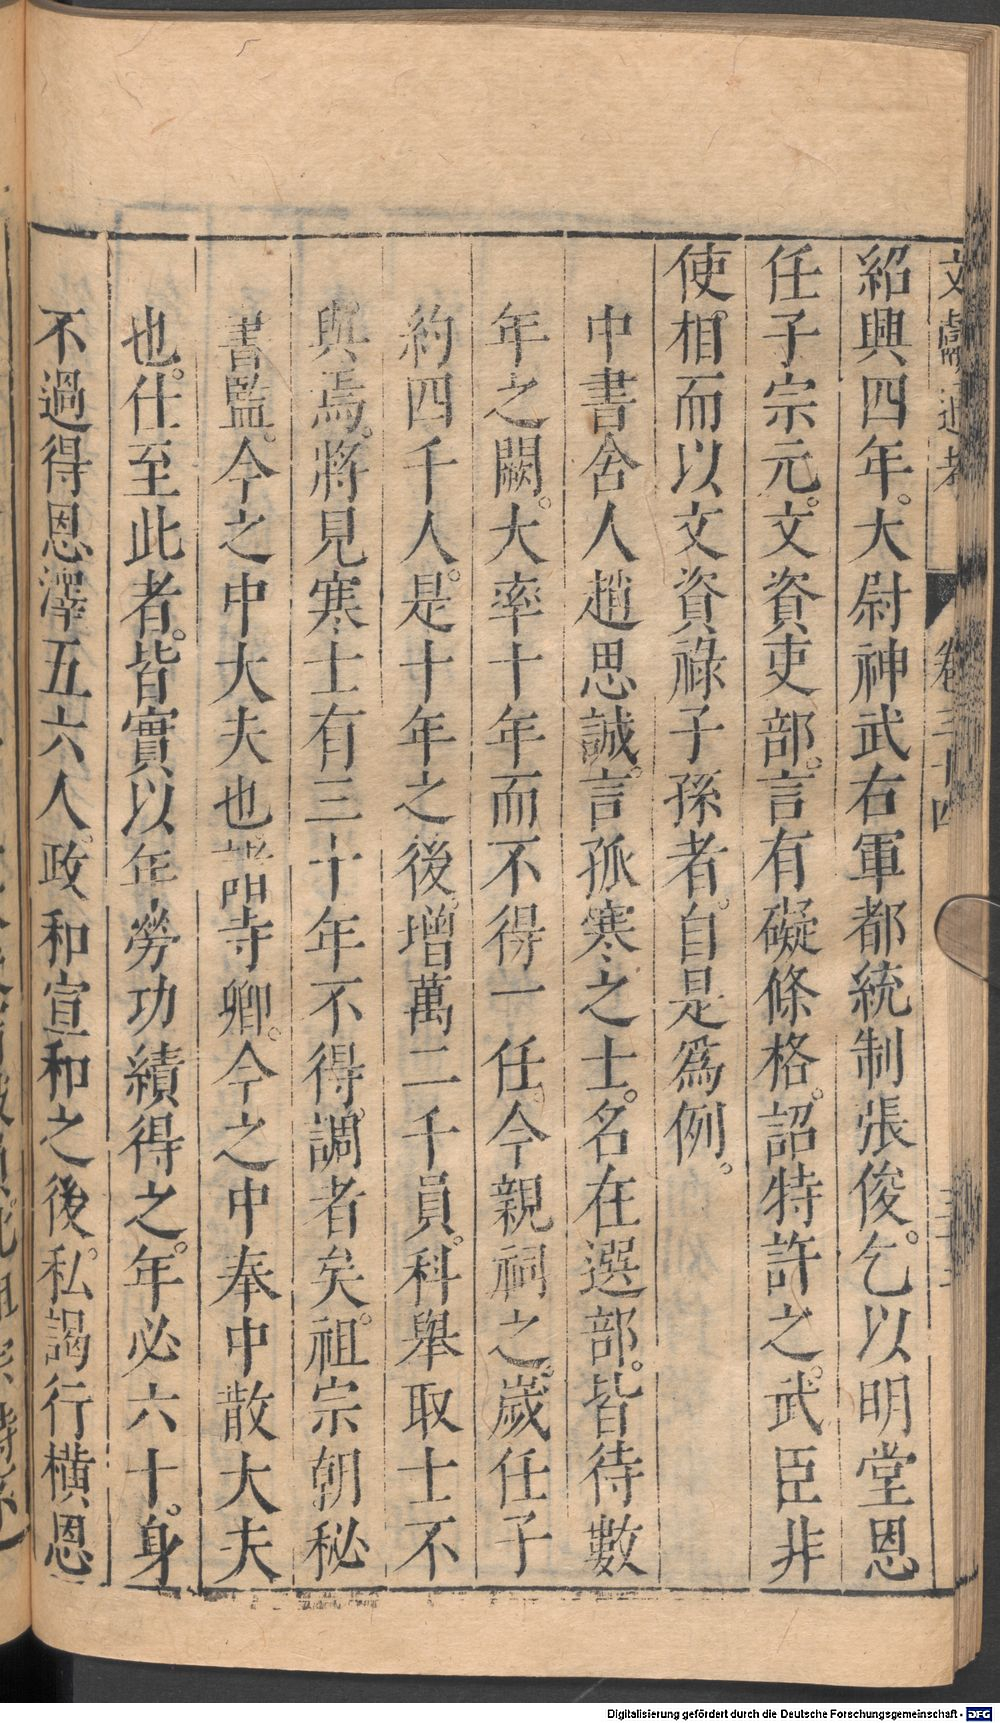 文獻通考 卷三十四
紹興四年。大尉神武右軍都統制張俊。乞以明堂恩
任子宗元。文資吏部。言有礙條格。詔特許之。武臣非
使。相而以文資祿子孫者。自是爲例。
中書舍人趙思誠。言孤寒之士。名在選部。皆待數
年之闕。大率十年而不得一任。今親祠之。歲任子
約四千人。是十年之後。增萬二千員。科舉取士不
與焉。將見寒士有三十年不得。調者矣。祖宗朝秘
書監。今之中大夫也。諸寺卿。今之中奉中散大夫
也。仕至此者。皆實以年勞功績得之。年必六十。身
不過得恩澤五六人。政和宣和之後。私謁行橫恩
Digitalisierung gefördert durch die Deutsche Forschungsgemeinschaft - DFG